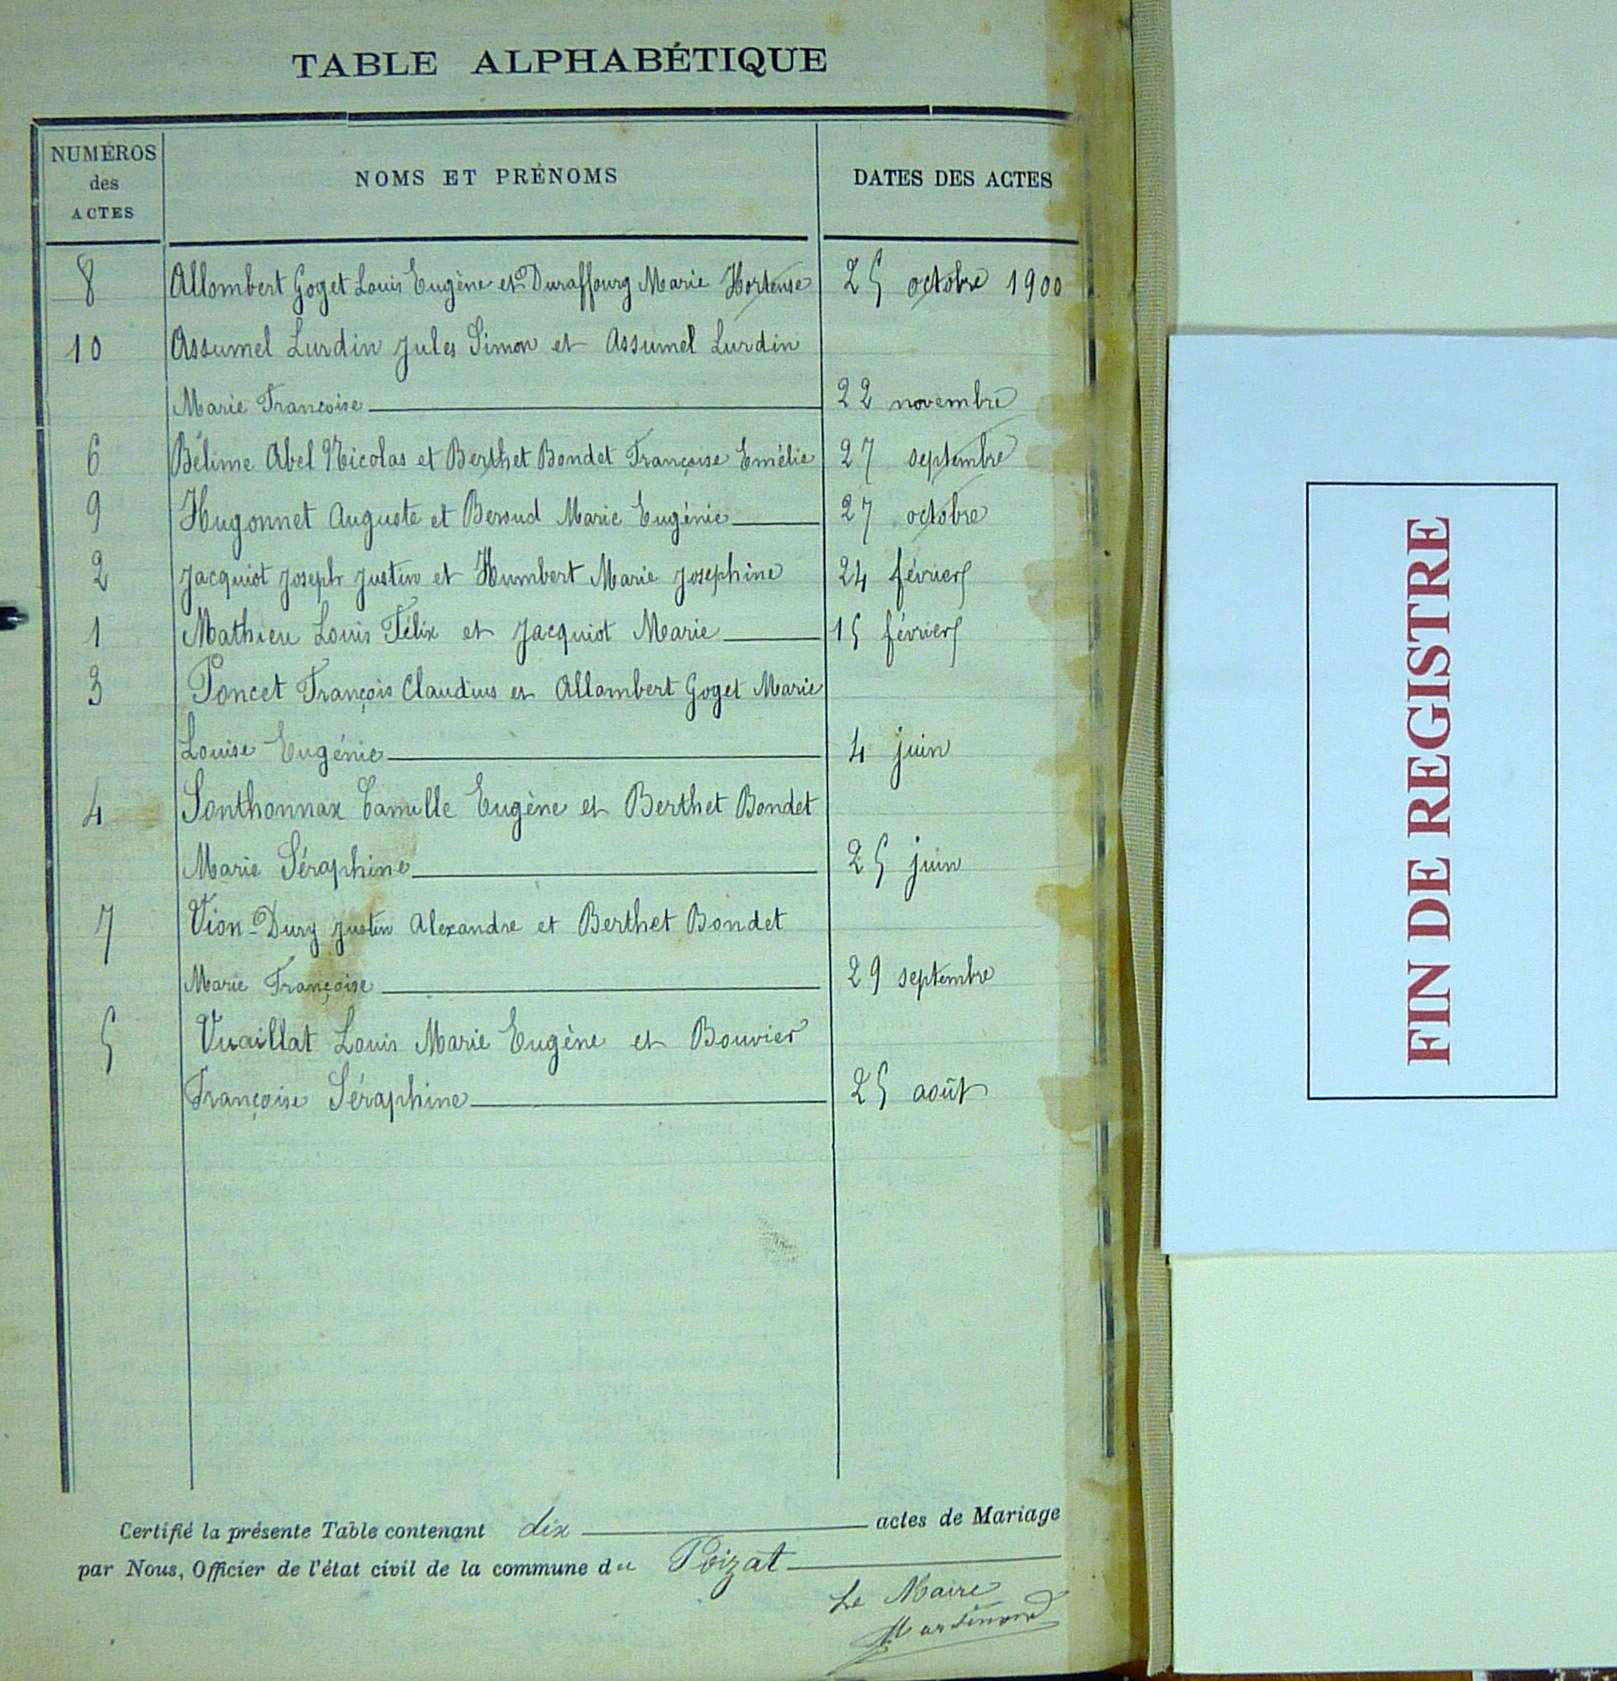 TABLE ALPHABÉTIQUE
NUMÉROS des ACTES
NOMS ET PRÉNOMS
DATES DES ACTES
8 Allombert Goget Louis Eugène et Duraffourg Marie Hortense 25 octobre 1900
10 Assumel Lurdin Jules Simon et Assumel Lurdin
Marie Françoise 22 novembre
6 Bélime Abel Nicolas et Berthet Bondet Françoise Emélie 27 septembre
9 Hugonnet Auguste et Beroud Marie Eugénie 27 octobre
2 Jacquiot Joseph Justin et Humbert Marie Josephine 24 février
1 Mathieu Louis Félix et Jacquiot Marie 15 février
3 Poncet François Claudius et Allombert Goget Marie
Louise Eugénie 4 juin
4 Sonthonnax Camille Eugène et Berthet Bondet
Marie Séraphine 25 juin
7 Vion-Dury Justin Alexandre et Berthet Bondet
Marie Françoise 29 septembre
5 Vuaillat Louis Marie Eugène et Bouvier
Françoise Séraphine 25 août
Certifié la présente Table contenant dix actes de Mariage
par Nous, Officier de l'état civil de la commune du Poizat
Le Maire
FIN DE REGISTRE